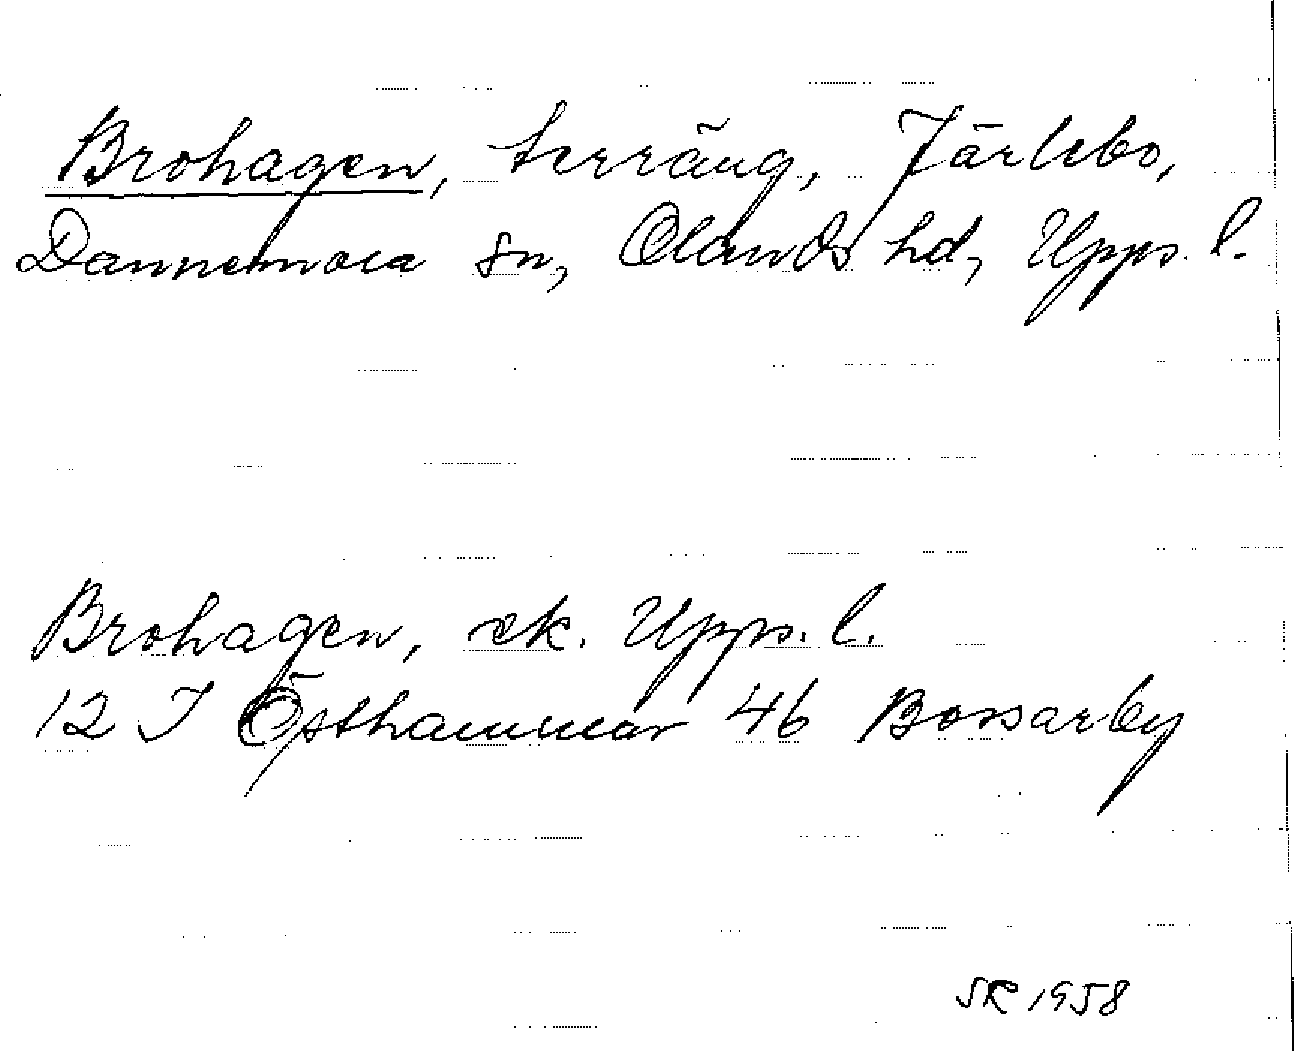 Brohagen, terräng, Järlebo,
Dannemora sn, Olands hd, Upps. l.
Brohagen, ek. Upps. l.
12 I Östhammar 46 Bossarby
SR 1958